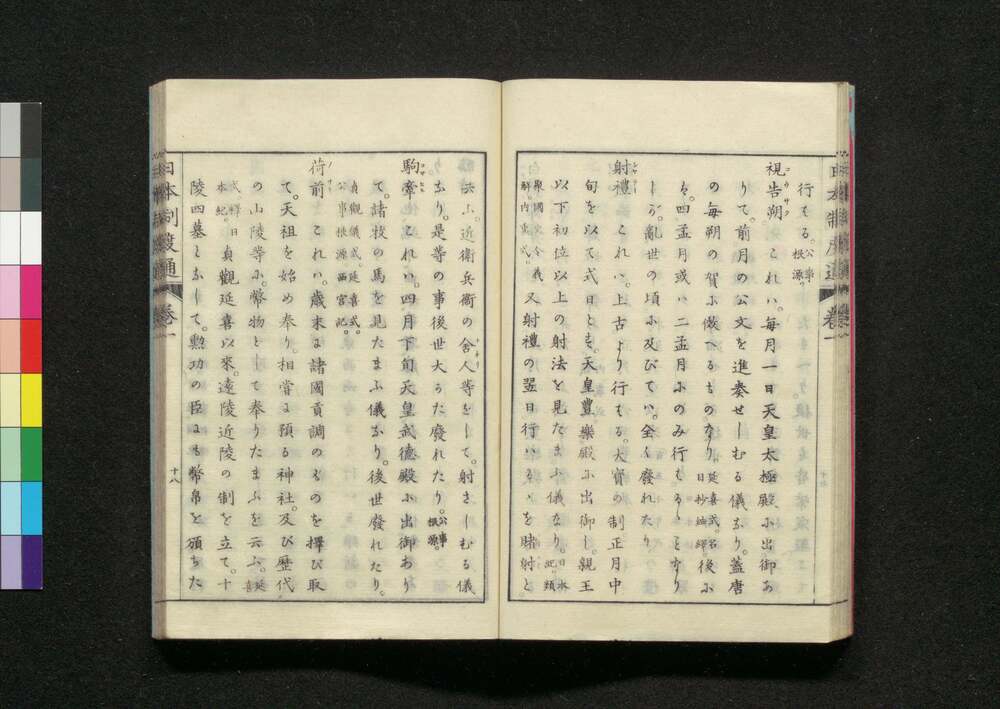 行はる。公事根源。
視告朔 これハ。毎月一日天皇太極殿ニ出御あ
りて。前月の公文を進奏せしむる儀なり。蓋唐
の毎朔の賀に倣へるものなり。延喜式。名目抄抽繹。後に
ハ。四孟月或ハ二孟月にのみ行はるゝことなり
しが。亂世の頃に及びてハ。全く廢れたり
射禮 これハ。上古より行はる。大寶の制正月中
旬を以て式日とす。天皇豊樂殿に出御し。親王
以下初位以上の射法を見たまふ儀なり。日本紀。類
聚國史。令義解。内裏式。又射禮の翌日行ハるゝを賭射と
云ふ。近衛兵衞の舍人等をして。射さしむる儀
なり。是等の事後世大かた廢れたり。公事根源。
駒牽 これハ。四月下旬天皇武德殿に出御あり
て。諸牧の馬を見たまふ儀なり。後世廢れたり。
貞觀儀式。延喜式。公事根源。西宮記。
荷前 これハ。歳末に諸國貢調のものを擇び取
て。天祖を始め奉り。相嘗に預る神社。及び歴代
の山陵等に。幣物として奉りたまふを云ふ。延喜
式。釋日本紀。貞觀延喜以來。遠陵近陵の制を立て。十
陵四墓となして。勳功の臣にも幣帛を頒ちた
日本制度通 卷一
十八